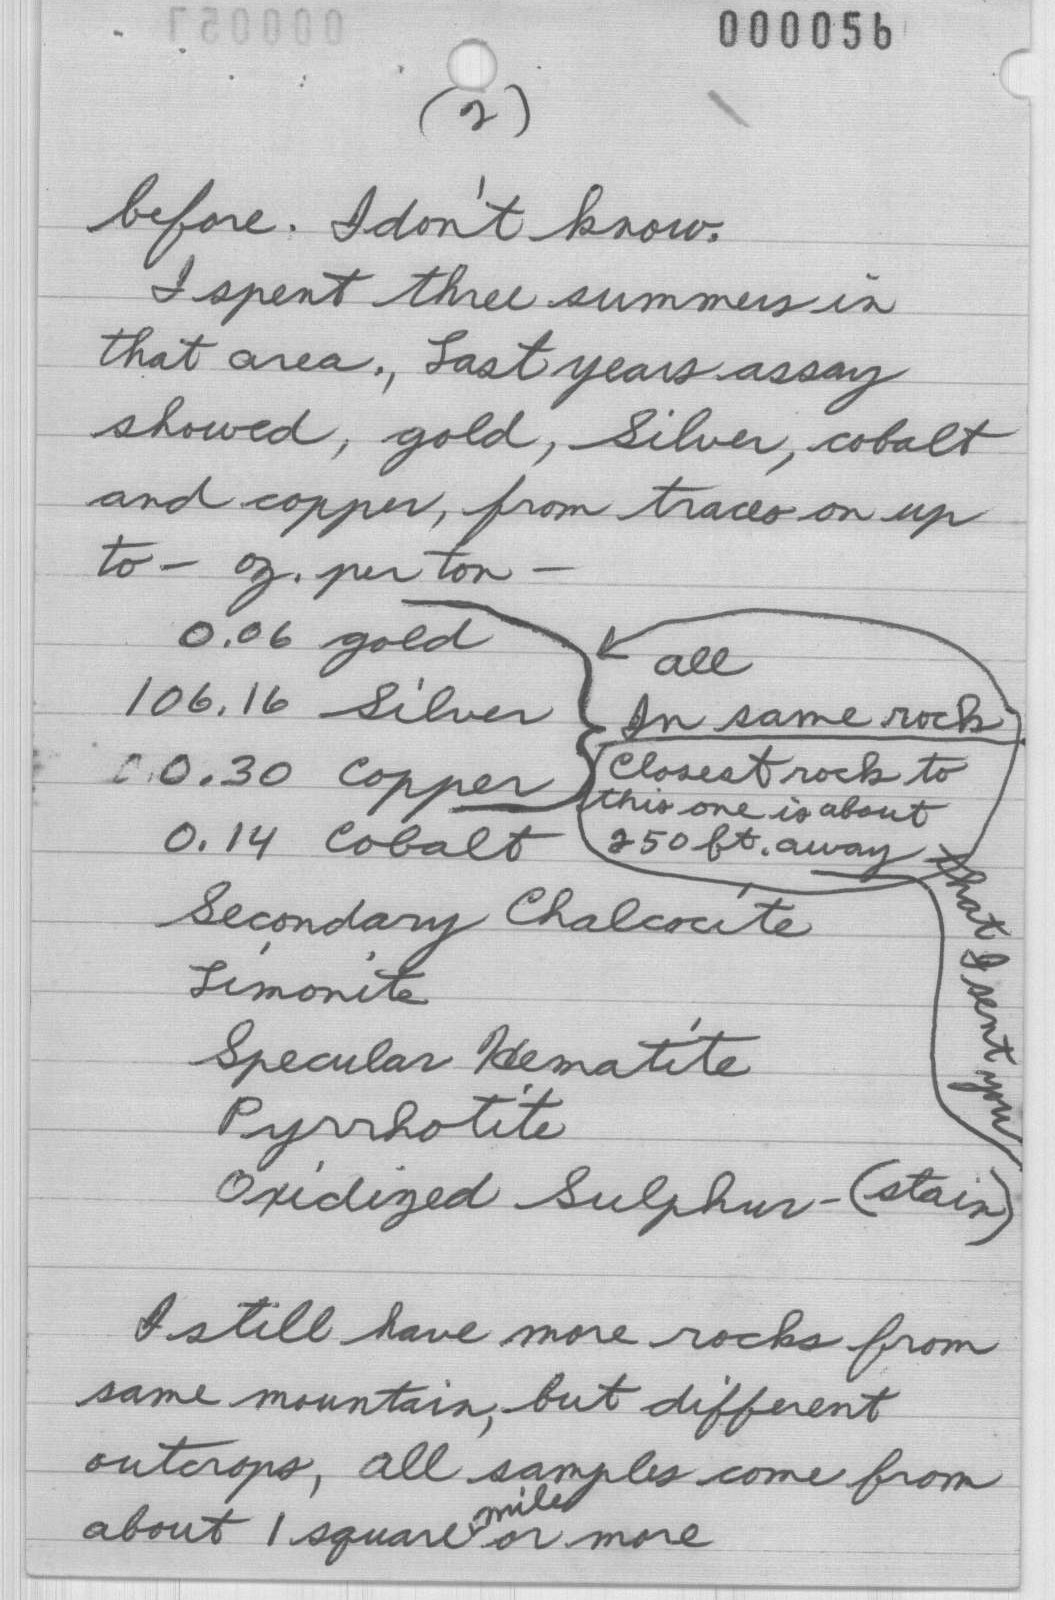 000056
(2)
before. I don't know.
I spent three summers in
that area., Last years assay
showed, gold, Silver, cobalt
and copper, from traces on up
to - oz. per ton -
0.06 gold
106.16 Silver
0.30 Copper
0.14 Cobalt
all
In same rock
Closest rock to
this one is about
250 ft. away
that I sent you
Secondary Chalcocite
Limonite
Specular Hematite
Pyrrhotite
Oxidized Sulphur - (stain)
I still have more rocks from
same mountain, but different
outcrops, all samples come from
about 1 square mile or more